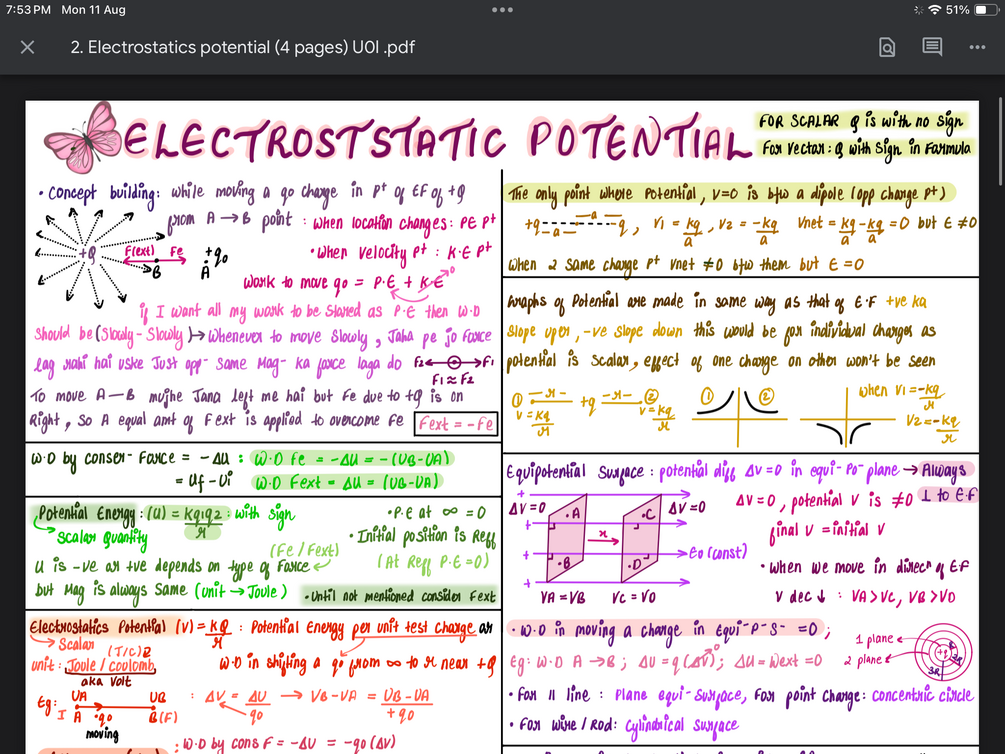 7:53 PM Mon 11 Aug
51%
2. Electrostatics potential (4 pages) UOI .pdf
ELECTROSTSTATIC POTENTIAL
FOR SCALAR Q is with no sign
For Vector: Q with Sign in Farmula
• Concept building: while moving a q0 charge in pt of EF of +Q
from A → B point : When location changes: PE pt
• When velocity pt : K.E pt
+Q F(ext) Fe B +q0 A
Work to move q0 = P.E + K.E 0
if I want all my work to be stared as P.E then W.D
Should be (Slowly-Slowly) → Whenever to move Slowly, Jaha pe jo Farce
lag rahi hai uske Just opp- Same Mag- ka farce laga do F2 F1
F1 ≈ F2
To move A—B mujhe Jana left me hai but Fe due to +Q is on
Right, So A equal amt of F ext is applied to overcome Fe Fext = -Fe
W.D by conser- Farce = -ΔU : W.D Fe = -ΔU = -(UB-UA)
= Uf-Ui W.D Fext = ΔU = (UB-UA)
Potential Energy : (U) = Kq1q2/r : with sign
Scalar Quantity
• P.E at ∞ = 0
• Initial position is Reff
(At Reff P.E=0)
U is -ve ar +ve depends on type of Farce (Fe / Fext)
but Mag is always Same (unit → Joule)
• Until not mentioned consider Fext
Electrostatics Potential (V) = KQ/r : Potential Energy per unit test charge ar
Scalar (J/C)
unit: Joule / coolomb, W.D in shifting a q0 from ∞ to r near +Q
aka Volt
Eg: UA UB : ΔV = ΔU/q0 → VB-VA = UB-UA/+q0
I A •q0 B(F)
moving
; W.D by cons F = -ΔU = -q0 (ΔV)
The only point where Potential, V=0 is btw a dipole (opp charge pt)
+q a a -q, V1 = kq/a, V2 = -kq/a Vnet = kq/a - kq/a = 0 but E ≠ 0
When 2 same charge pt Vnet ≠ 0 btw them but E = 0
Graphs of Potential are made in same way as that of E.F +ve ka
Slope uper, -ve slope down this would be for individual charges as
potential is Scalar, effect of one charge on other won't be seen
① -r- +q -r- ② ① ② when V1 = -kq/r
V = kq/r V = kq/r V2 = -kq/r
Equipotential Surface : potential diff ΔV=0 in equi-Po-plane → Always
⊥ to E.F
ΔV=0 •A •C ΔV=0 ΔV=0, potential V is ≠0
final V = initial V
x •B •D E0 (const)
• When we move in direcn of EF
VA = VB VC = VD V dec ↓ : VA > VC, VB > VD
• W.D in moving a charge in Equi-P-S- = 0 ;
1 plane
2 plane
+q
Eg: W.D A → B ; ΔU = q(ΔV) 0; ΔU = Wext = 0
• For || line : Plane equi-Surface, For point charge: concentric circle
• For wire / Rod: Cylindrical Surface